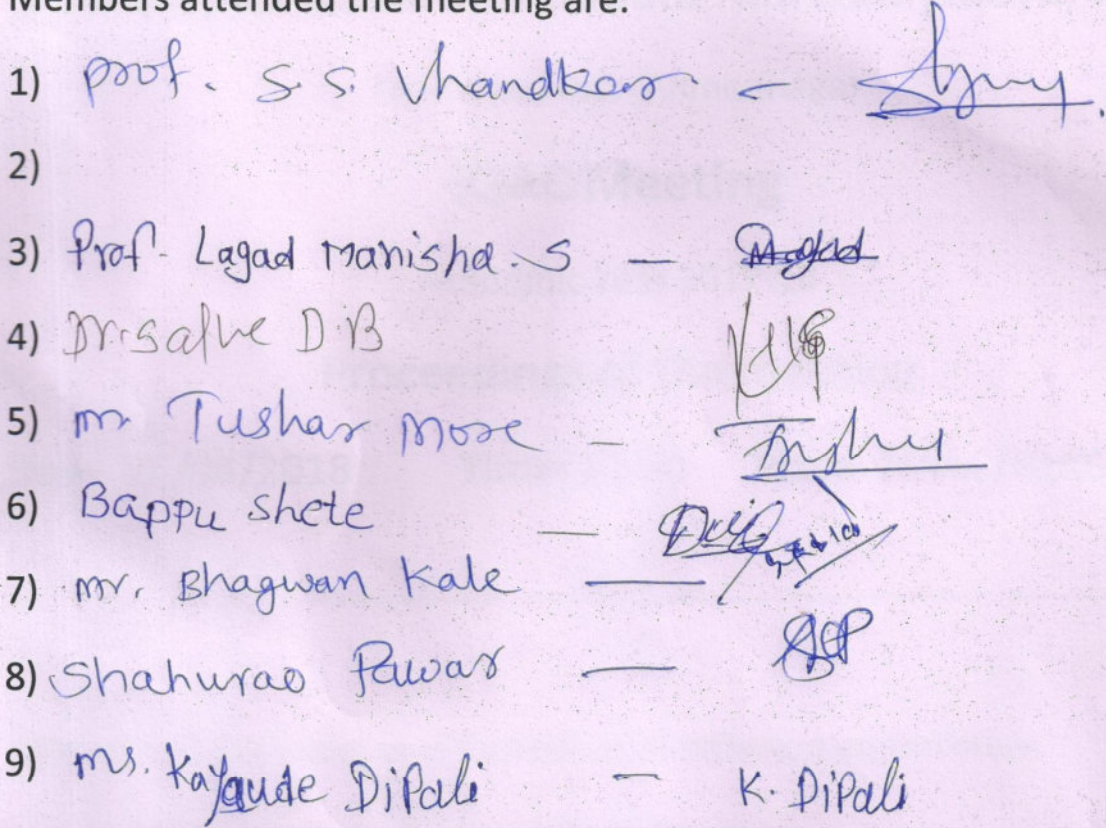 Members attended the meeting are:
1) Prof. S. S. Vhandkar -
2)
3) Prof- Lagad Manisha. S —
4) Dr. Salve D.B
5) mr Tushar More —
6) Bappu Shete —
7) mr. Bhagwan Kale —
8) Shahurao Pawar —
9) ms. Kalaude DiPali — K. DiPali